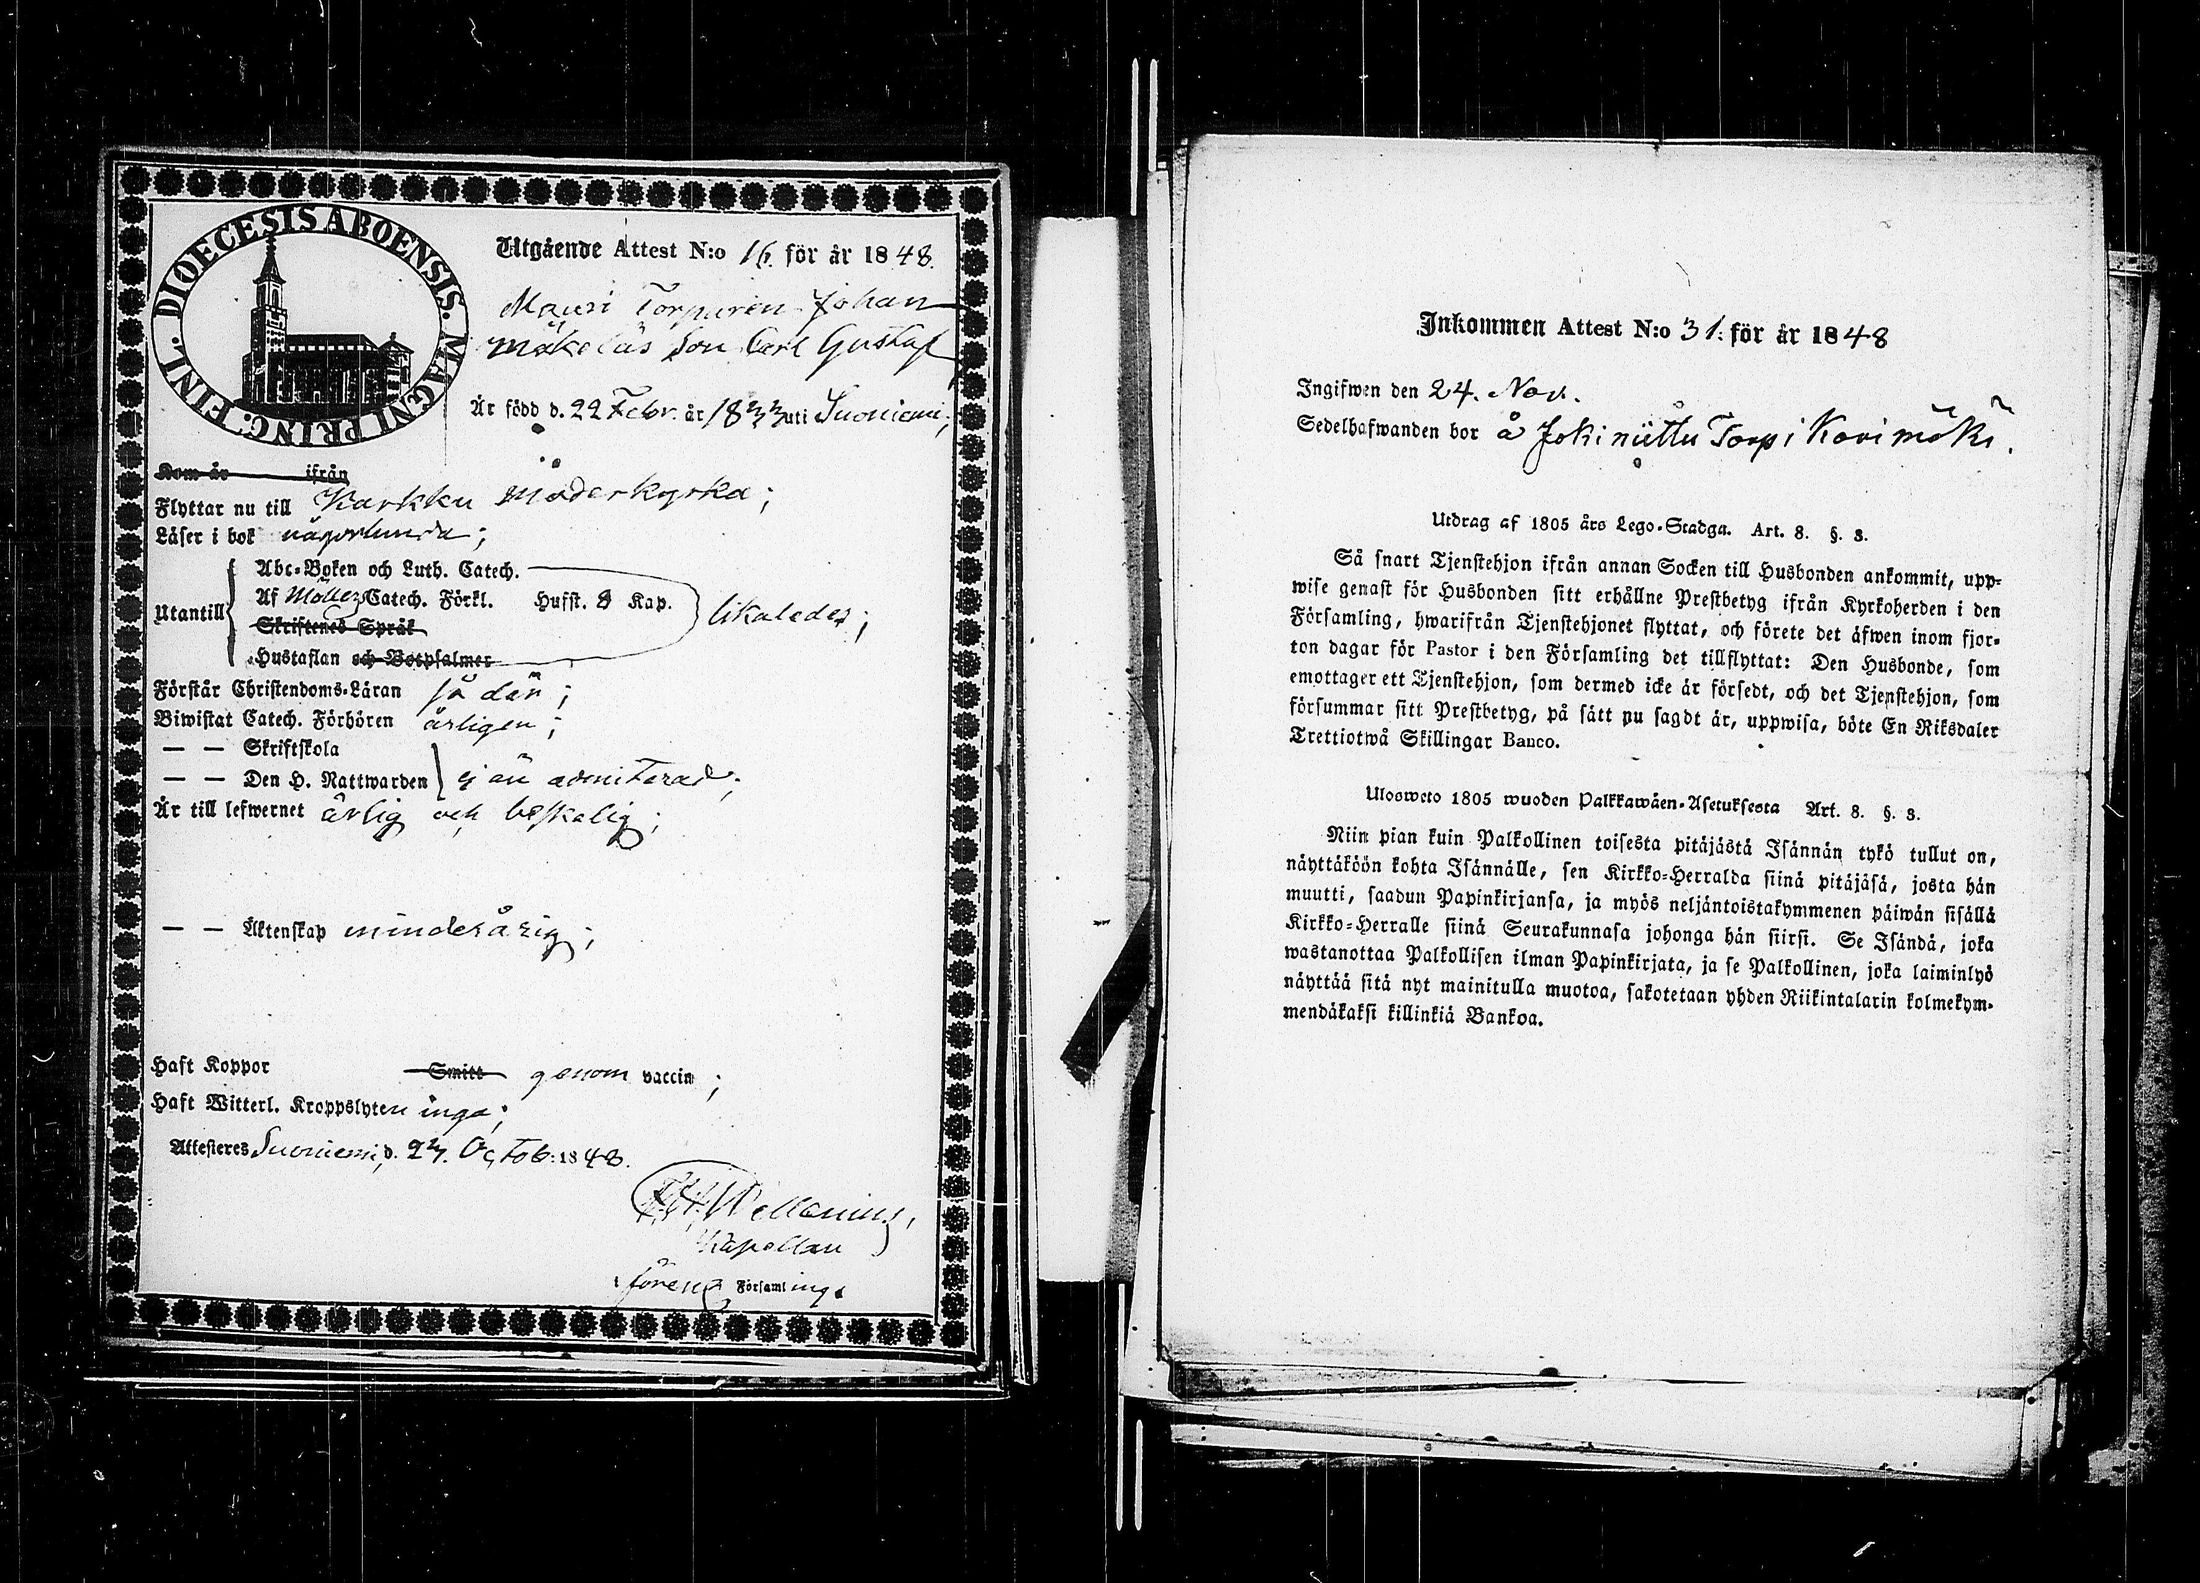 DIOECESIS ABOENSIS. MAGNI PRINC. FINL.
Utgående Attest N:o 16. för år 1848.
Mauri Torparen Johan
Mäkeläs Son Carl Gustaf
Är född d. 22 Febr. år 1833 uti Suoniemi;
Kom år ifrån
Flyttar nu till Karkku Moderkyrka;
Läser i bok någorlunda;
Abc-Boken och Luth. Catech.
Utantill Af Möllers Catech. Förkl. Hufst. 8 Kap. likaledes;
Skriftenes Språk
Hustaflan och Botpsalmer
Förstår Christendoms-Läran så där;
Biwistat Catech. Förhören årligen;
— — Skriftskola
— — Den H. Nattwarden ej än admiterad;
Är till lefwernet ärlig och beskelig;
— — Äktenskap minderårig;
Haft Koppor Smitt genom vaccin;
Haft Witterl. Kroppslyten inga;
Attesteres Suoniemi d. 27. Octob: 1848.
Kapellan
Församling.
Inkommen Attest N:o 31. för år 1848
Ingifwen den 24. Nov.
Sedelhafwanden bor å Jokiniittu Torp i Korimäki.
Utdrag af 1805 års Lego-Stadga. Art. 8. §. 3.
Så snart Tjenstehjon ifrån annan Socken till Husbonden ankommit, upp-
wise genast för Husbonden sitt erhållne Prestbetyg ifrån Kyrkoherden i den
Församling, hwarifrån Tjenstehjonet flyttat, och förete det äfwen inom fjor-
ton dagar för Pastor i den Församling det tillflyttat: Den Husbonde, som
emottager ett Tjenstehjon, som dermed icke är försedt, och det Tjenstehjon, som
försummar sitt Prestbetyg, på sätt nu sagdt är, uppwisa, böte En Riksdaler
Trettiotwå Skillingar Banco.
Ulosweto 1805 wuoden Palkkawäen-Asetuksesta Art. 8. §. 3.
Niin pian kuin Palkollinen toisesta pitäjästä Isännän tykö tullut on,
näyttäköön kohta Isännälle, sen Kirkko-Herralda siinä pitäjäsä, josta hän
muutti, saadun Papinkirjansa, ja myös neljäntoistakymmenen päiwän sisällä
Kirkko-Herralle siinä Seurakunnasa johonga hän siirsi. Se Isändä, joka
wastanottaa Palkollisen ilman Papinkirjata, ja se Palkollinen, joka laiminlyö
näyttää sitä nyt mainitulla muotoa, sakotetaan yhden Riikintalarin kolmekym-
mendäkaksi killinkiä Bankoa.